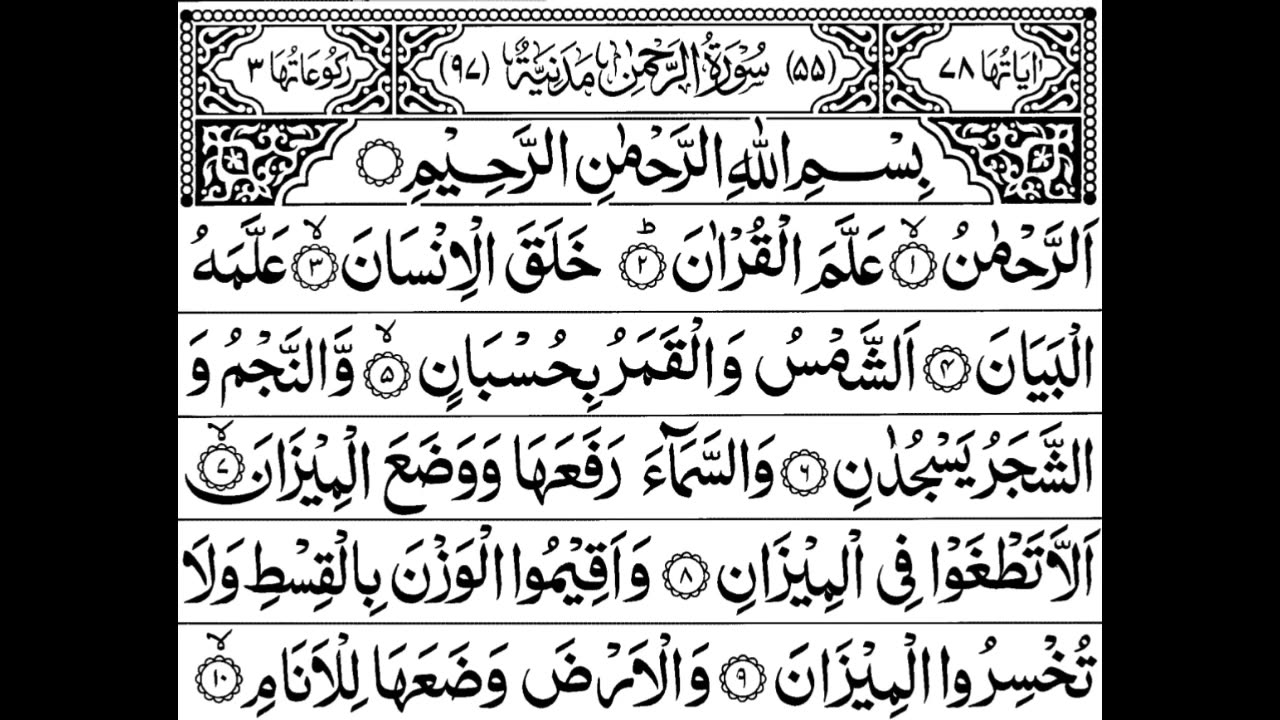 اٰيَاتُهَا ٧٨ (٥٥) سُوْرَةُ الرَّحْمٰنِ مَدَنِيَّةٌ (٩٧) رُكُوْعَاتُهَا ٣
بِسْمِ اللّٰهِ الرَّحْمٰنِ الرَّحِيْمِ
اَلرَّحْمٰنُ ۙ﴿١﴾ عَلَّمَ الْقُرْاٰنَ ؕ﴿٢﴾ خَلَقَ الْاِنْسَانَ ۙ﴿٣﴾ عَلَّمَهُ
الْبَيَانَ ﴿٤﴾ اَلشَّمْسُ وَالْقَمَرُ بِحُسْبَانٍ ۙ﴿٥﴾ وَّالنَّجْمُ وَ
الشَّجَرُ يَسْجُدٰنِ ﴿٦﴾ وَالسَّمَآءَ رَفَعَهَا وَوَضَعَ الْمِيْزَانَ ۙ﴿٧﴾
اَلَّا تَطْغَوْا فِى الْمِيْزَانِ ﴿٨﴾ وَاَقِيْمُوا الْوَزْنَ بِالْقِسْطِ وَلَا
تُخْسِرُوا الْمِيْزَانَ ﴿٩﴾ وَالْاَرْضَ وَضَعَهَا لِلْاَنَامِ ۙ﴿١٠﴾